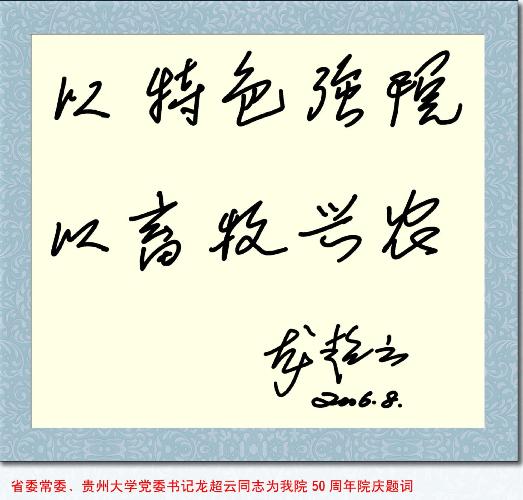 以特色强院
以畜牧兴农
龙超云
2006.8.
省委常委、贵州大学党委书记龙超云同志为我院50周年院庆题词